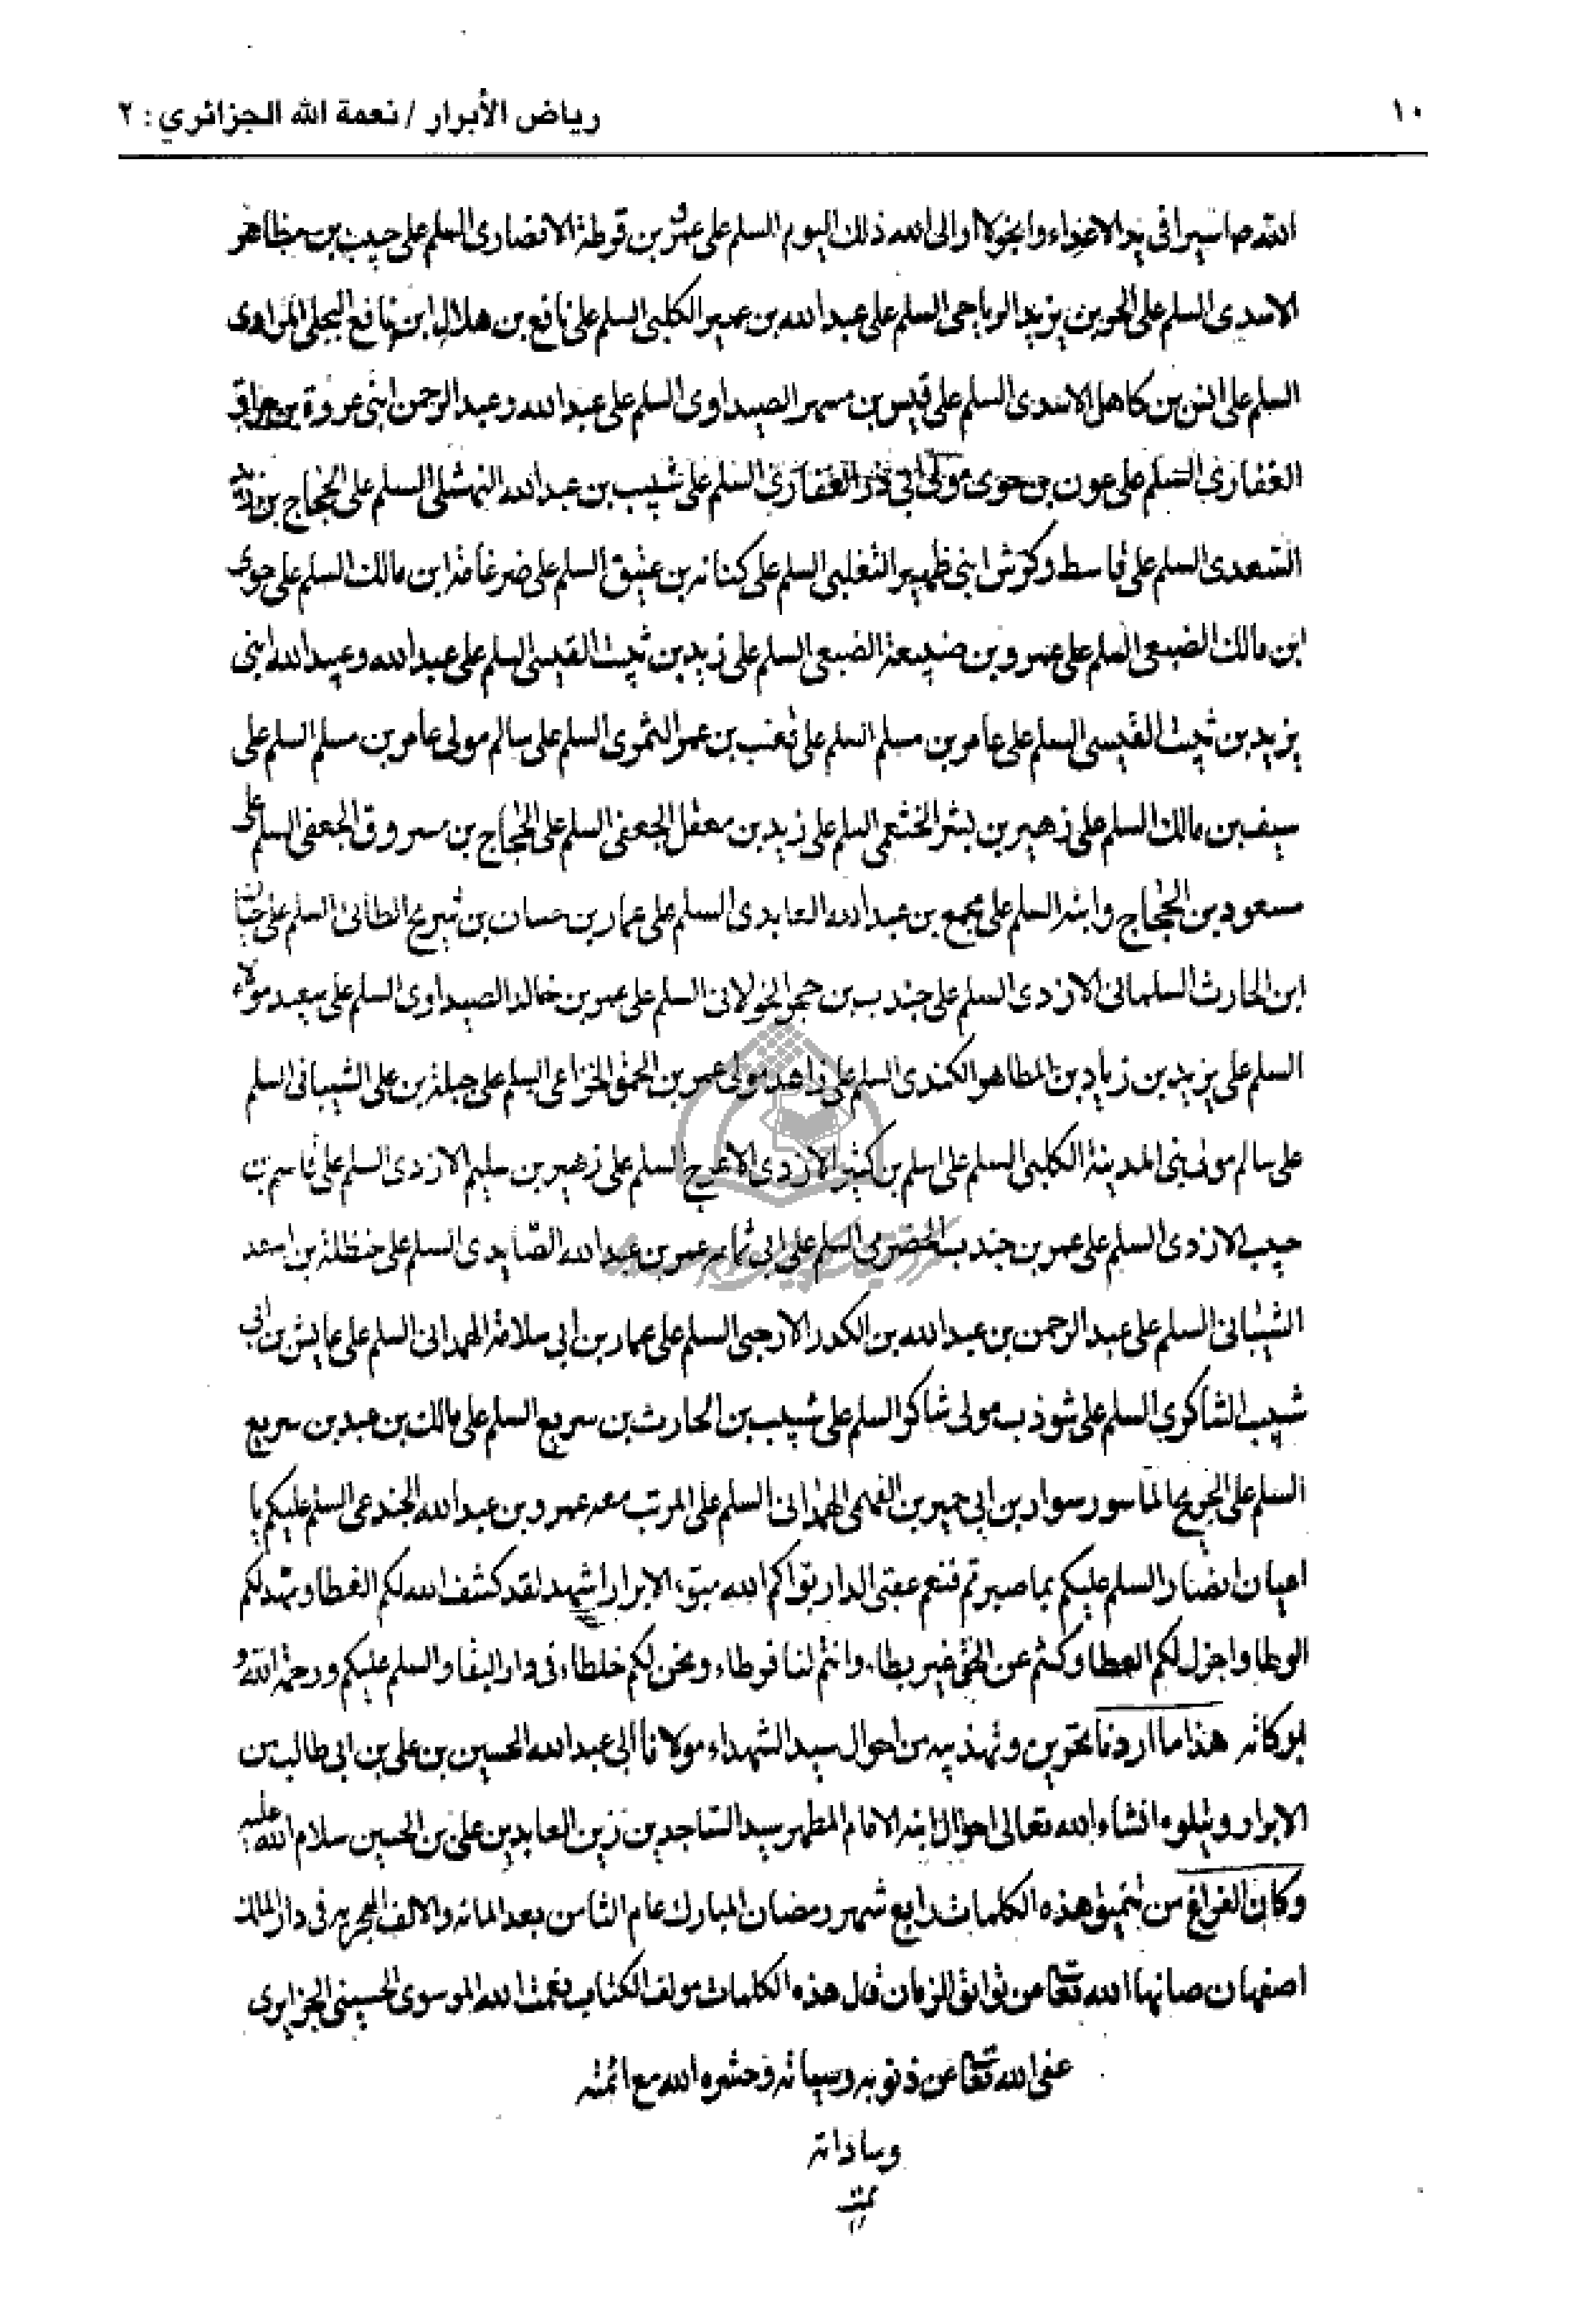 ١٠
رياض الأبرار / نعمة الله الجزائري : ٢
الله ذلك اليوم السلم على بن قرطة الانصارى السلم على حبيب بن مظاهر
الاسدى السلم على الحر بن يزيد الرياحى السلم على عبدالله بن عمير الكلبى السلم على نافع بن هلال ابن نافع البجلى المرادى
السلم على انس بن كاهل الاسدى السلم على قيس بن مسهر الصيداوى السلم على عبدالله وعبدالرحمن ابنى عروة بن حراق
الغفارى السلم على عون بن حوى مولى ابى ذر الغفارى السلم على شبيب بن عبدالله النهشلى السلم على الحجاج بن
السعدى السلم على قاسط وكرش ابنى ظهير التغلبى السلم على كنانه بن عتيق السلم على ضرغامة ابن مالك السلم على حوى
ابن مالك الضبعى السلم على عمرو بن ضبيعة الضبعى السلم على زيد بن ثبيت القيسى السلم على عبدالله وعبيدالله ابنى
يزيد بن ثبيت القيسى السلم على عامر بن مسلم السلم على قعنب بن عمر النمرى السلم على سالم مولى عامر بن مسلم السلم على
سيف بن مالك السلم على زهير بن بشر الخثعمى السلم على زيد بن معقل الجعفى السلم على الحجاج بن مسروق الجعفى السلم على
مسعود بن الحجاج وابنه السلم على مجمع بن عبدالله العايدى السلم على عمار بن حسان بن شريح الطائى السلم على
ابن الحارث السلمانى الازدى السلم على جندب بن حجر الخولانى السلم على عمر بن خالد الصيداوى السلم على سعيد مولاه
السلم على يزيد بن زياد بن المظاهر الكندى السلم على زاهد مولى عمر بن الحمق الخزاعى السلم على جبلة بن على الشيبانى السلم
على سالم مولى بنى المدينة الكلبى السلم على اسلم بن كثير الازدى الاعرج السلم على زهير بن سليم الازدى السلم على قاسم بن
حبيب الازدى السلم على عمر بن جندب الحضرمى السلم على ابى ثمامه عمر بن عبدالله الصايدى السلم على حنظلة بن اسعد
الشبانى السلم على عبدالرحمن بن عبدالله بن الكدر الارحبى السلم على عمار بن ابى سلامة الهمدانى السلم على عابس بن ابى
شبيب الشاكرى السلم على شوذب مولى شاكر السلم على شبيب بن الحارث بن سريع السلم على مالك بن عبد بن سريع
السلم على الجريح الماسور سوار بن ابى حمير بن الفهمى الهمدانى السلم على المرتب معه عمرو بن عبدالله الجندعى السلم عليكم يا
السلم عليكم بما صبرتم فنعم عقبى الدار بواكم الله مبوء الابرار اشهد لقد كشف الله لكم الغطا ومهد لكم
الوطا واجزل لكم العطا وكنتم عن الحق غير بطاء وانتم لنا فرطاء ونحن لكم خلطاء فى دار البقا والسلم عليكم ورحمة الله و
بركاته هذا ما اردنا وتهذيبه من احوال سيد الشهداء مولانا ابى عبدالله الحسين بن على بن ابى طالب من
الابرار ويتلوه انشاء الله تعالى احوال ابنه الامام المطهر سيد الساجدين زين العابدين على بن الحسين سلام الله عليه
وكان الفراغ من تنميق هذه الكلمات رابع شهر رمضان المبارك عام الثامن بعد المائه والالف الهجريه فى دار الملك
اصفهان صانها الله تعا من الزمان قال هذه الكلمات مولف الكتاب نعمت الله الموسوى الحسينى الجزايرى
عفى الله تعا عن ذنوبه وسيئاته وحشره الله مع ائمته
وساداته
تمت